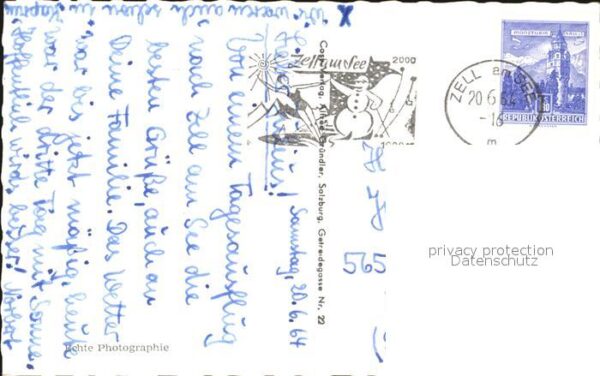 x Wir waren auch schon in Kaprun
Samstag, 20.6.64
Lieber
Von einem Tagesausflug
nach Zell am See die
besten Grüße, auch an
Deine Familie. Das Wetter
war bis jetzt mäßig, heute
war der dritte Tag mit Sonne.
Hoffentlich wird's besser!
Echte Photographie
Zell am See
2000
ZELL am SEE
20.6.64
-16
m
REPUBLIK ÖSTERREICH
Salzburg, Getreidegasse Nr. 22
565
privacy protection
Datenschutz